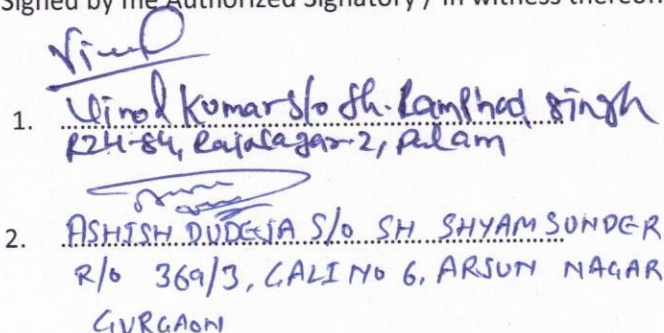 Signed by me Authorized Signatory / In witness thereon
Vinod
1. Vinod Kumar S/o Sh. Ramphad Singh
RZH-84, Rajasagar-2, Palam
2. ASHISH DUDEJA S/o SH SHYAM SUNDER
R/o 369/3, GALI NO 6, ARJUN NAGAR
GURGAON